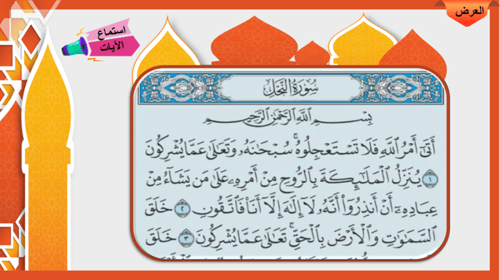 العرض
استماع
الآيات
سُورَةُ النَّحْلِ
بِسْمِ اللَّهِ الرَّحْمَٰنِ الرَّحِيمِ
أَتَىٰٓ أَمْرُ اللَّهِ فَلَا تَسْتَعْجِلُوهُ ۚ سُبْحَٰنَهُۥ وَتَعَٰلَىٰ عَمَّا يُشْرِكُونَ
١ يُنَزِّلُ الْمَلَٰٓئِكَةَ بِالرُّوحِ مِنْ أَمْرِهِۦ عَلَىٰ مَن يَشَآءُ مِنْ
عِبَادِهِۦٓ أَنْ أَنذِرُوٓا۟ أَنَّهُۥ لَآ إِلَٰهَ إِلَّآ أَنَا۠ فَاتَّقُونِ ٢ خَلَقَ
السَّمَٰوَٰتِ وَالْأَرْضَ بِالْحَقِّ ۚ تَعَٰلَىٰ عَمَّا يُشْرِكُونَ ٣ خَلَقَ